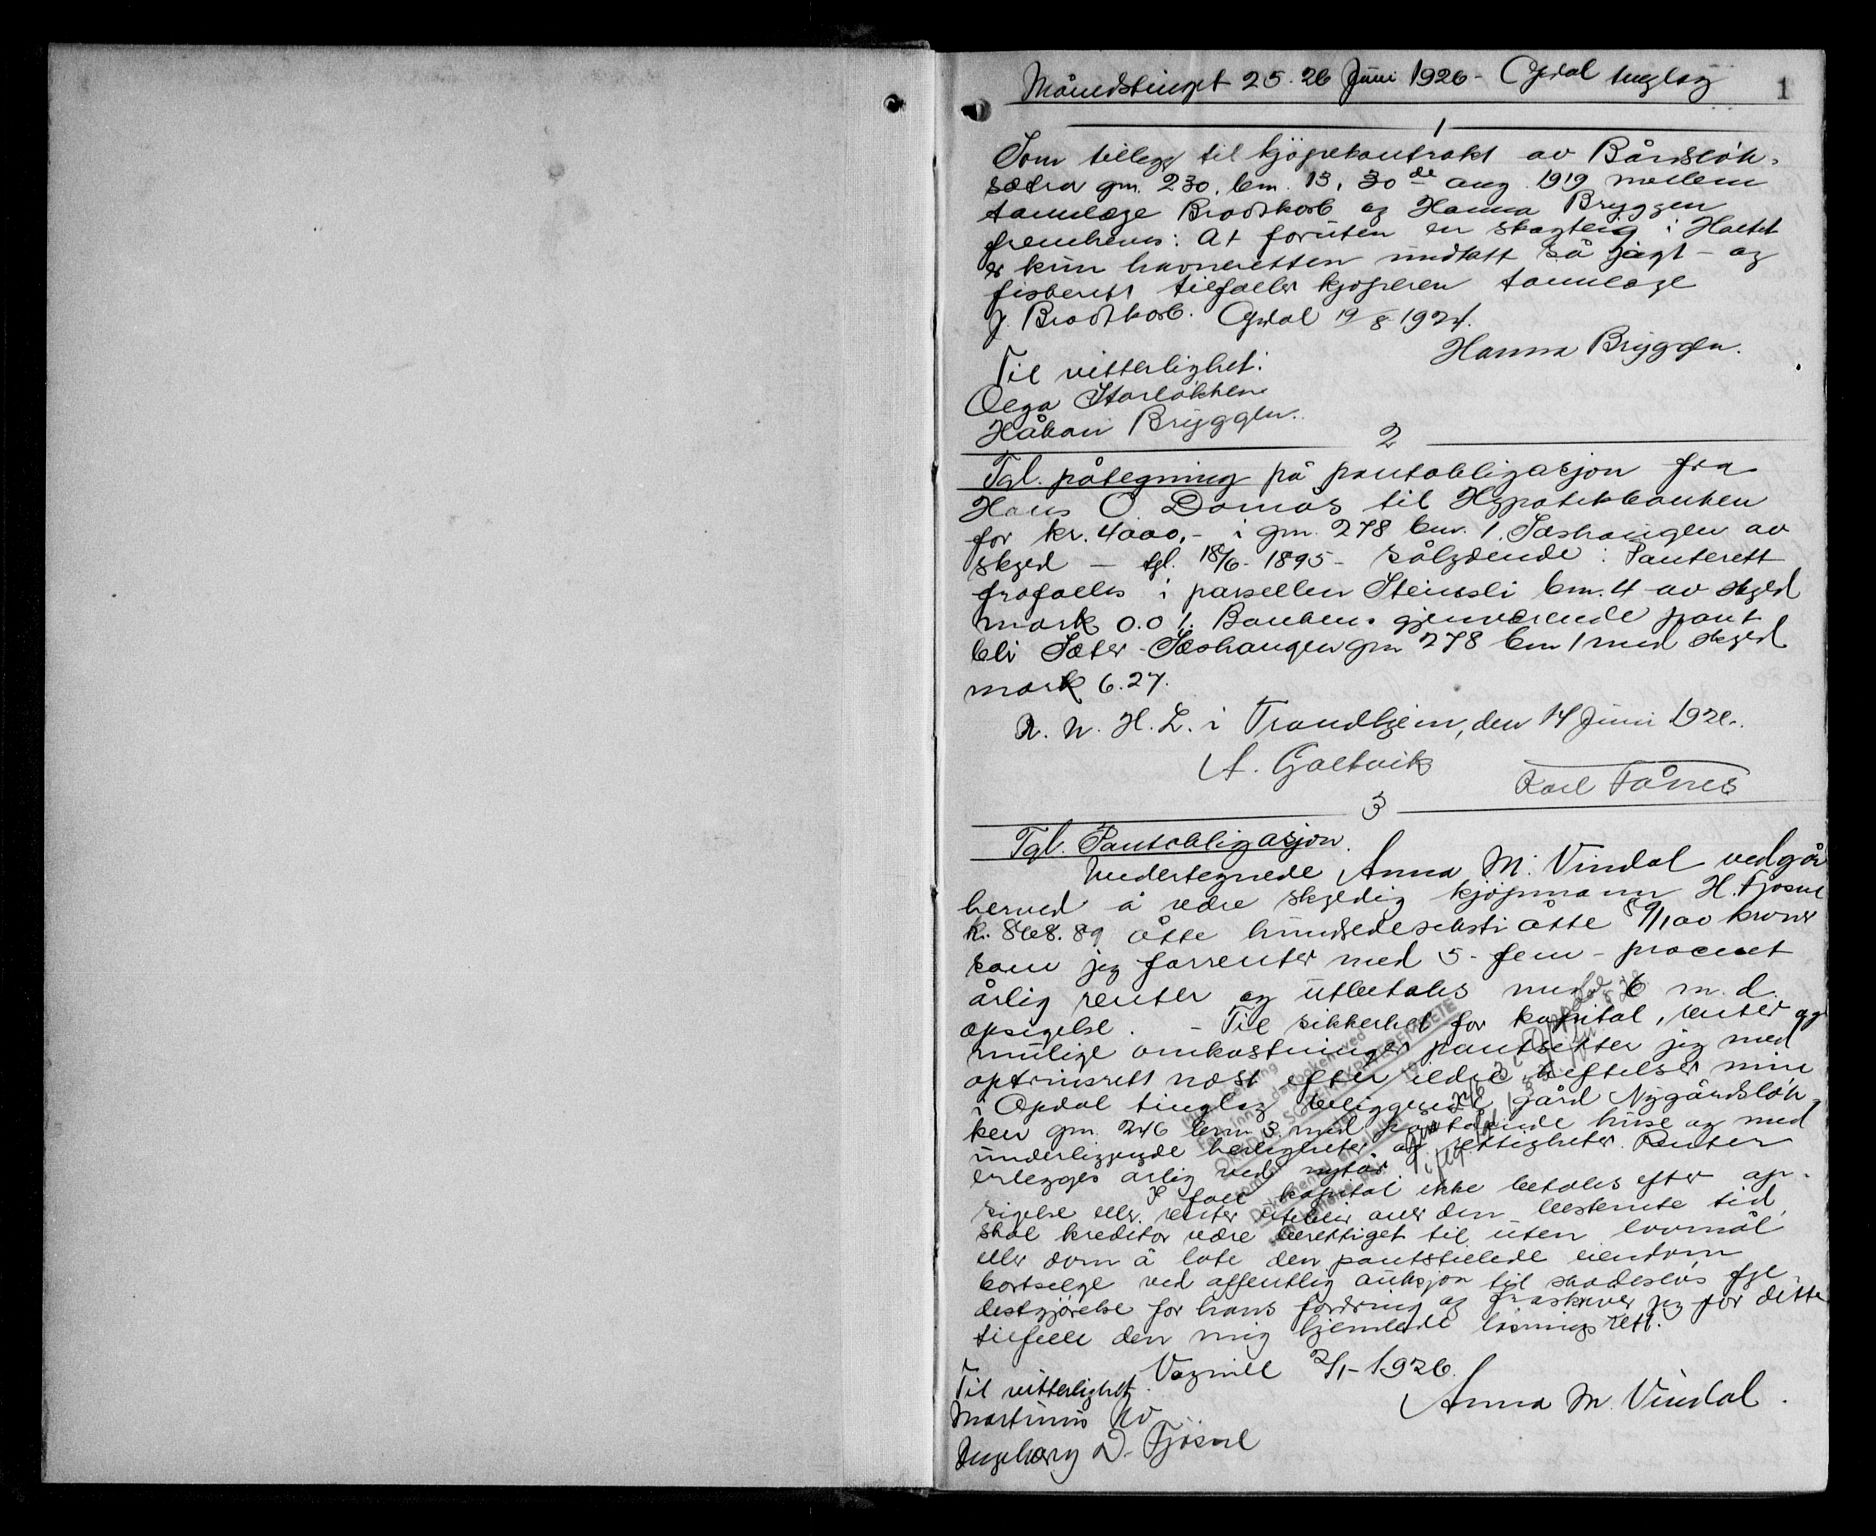 Månedstinget 25. 26 Juni 1926 - Opdal tinglag
1
1
Som tillegg til kjöpekontrakt av Bårdsløk-
sætra gnr. 230. bnr. 13, 30de aug. 1919 mellem
tannlæge Brodtkorb og Hanna Bryggen
fremheves: At foruten en skogteig i
er kun havneretten undtatt så jagt- og
fiskerett tilfaller kjøperen tannlæge
J. Brodtkorb. Opdal 19/8 1924.
Hanna Bryggen.
Til vitterlighet:
Olga Storløkken
Håkon Bryggen.
2
Tgl. påtegning på pantobligasjon fra
Hans O. Domås til Hypotekbanken
for kr. 4000,- i gnr. 278 bnr. 1. Sæshaugen av
skyld - tgl. 18/6-1895 - sålydende: Panterett
frafalles i parsellen Stensli bnr. 4 av skyld
mark 0.01. Bankens gjenværende pant
bli Sæter-Sæshaugen gnr 278 bnr 1 med skyld
mark 6.27.
D. N. H. L. i Trondhjem, den 14 Juni 1926.
A. Galtvik Karl Tånes
3
Tgl. Pantobligasjon.
Undertegnede Anna M. Vindal vedgår
herved å være skyldig kjøpmann H. Fjøsne
kr. 868.89 åtte hundredeseksti åtte 89/100 kroner
som jeg forrenter med 5 - fem - procent
årlig renter og utbetales med 6 m. d.
opsigelse. - Til sikkerhet for kapital, renter og
mulige omkostninger pantsetter jeg med
optrinsrett næst efter eldre heftelser min
i Opdal tinglag beliggende gård Nygårdsløk-
ken gnr. 246 bnr. 3 med påstående huse og med
underliggende herligheter og rettigheter. Renter
erlegges årlig ved nytår.
I fall kapital ikke betales efter op-
sigelse eller renter utebliir over den bestemte tid
skal kreditor være berettiget til uten lovmål
eller dom å late den pantstillede eiendom
bortselge ved offentlig auksjon til skadesløs fyl-
destgjørelse for hans fordring og fraskriver jeg for dette
tilfelle den mig hjemlede løsningsrett.
Vognill 2/1-1926.
Til vitterlighet
Anna M. Vindal.
Martinus
Ingeborg D. Fjøsne